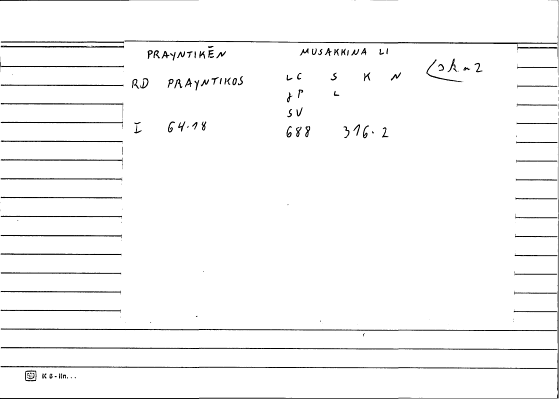 PRAYNTIKĒN MUSAKKINA LI
RD PRAYNTIKOS LC S K N
γP L
SV
I 64.18 688 316.2
K 8-lln...